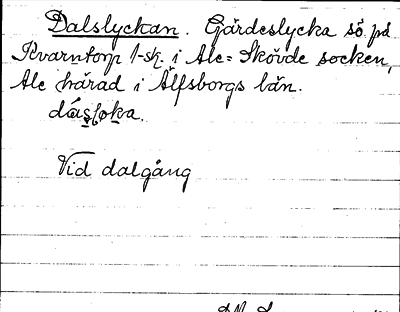 Dalslyckan. Gärdeslycka sö. på
Kvarntorp 1-sk. i Ale-Skövde socken,
Ale härad i Älfsborgs län.
Vid dalgång